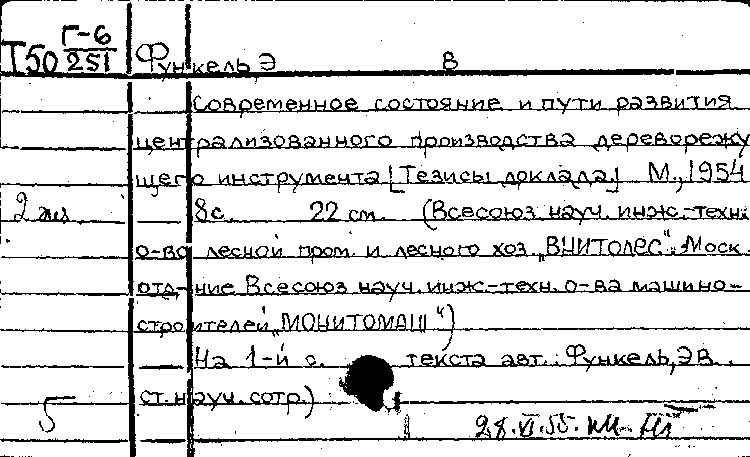 Т50 Г-6/251 Функель, Э В
Современное состояние и пути развития
централизованного производства дереворежу
щего инструмента [Тезисы доклада] М., 1954
2 экз. 8с. 22 см. (Всесоюз науч. инж.-техн
о-во лесной пром. и лесного хоз. „ВНИТОЛЕС". Моск.
отд-ние Всесоюз науч. инж-техн. о-ва машино-
строителей „МОНИТОМАШ")
На 1-й с. текста авт.: Функель, Э В.
ст. науч. сотр.)
5
28.VI.55.